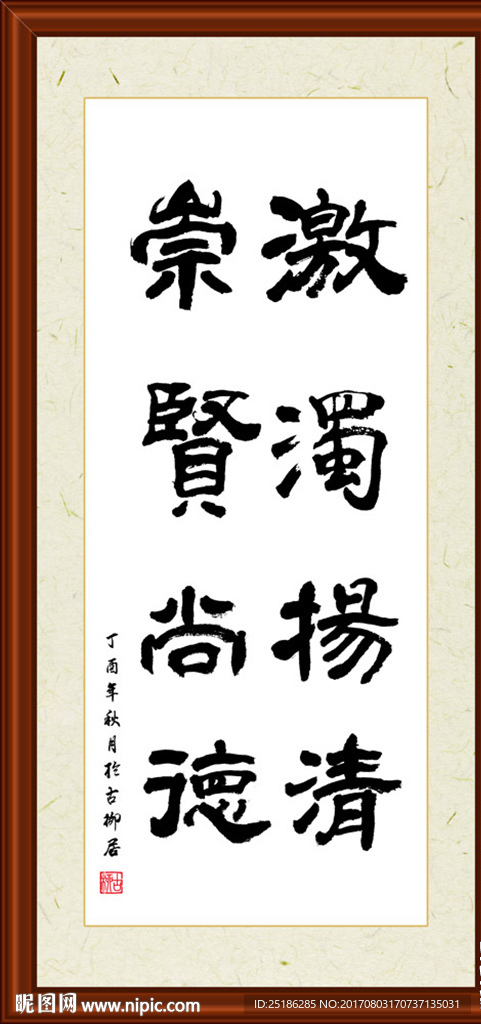 激濁揚清
崇賢尚德
丁酉年秋月於古柳居
昵图网 www.nipic.com
ID:25186285 NO:20170803170737135031